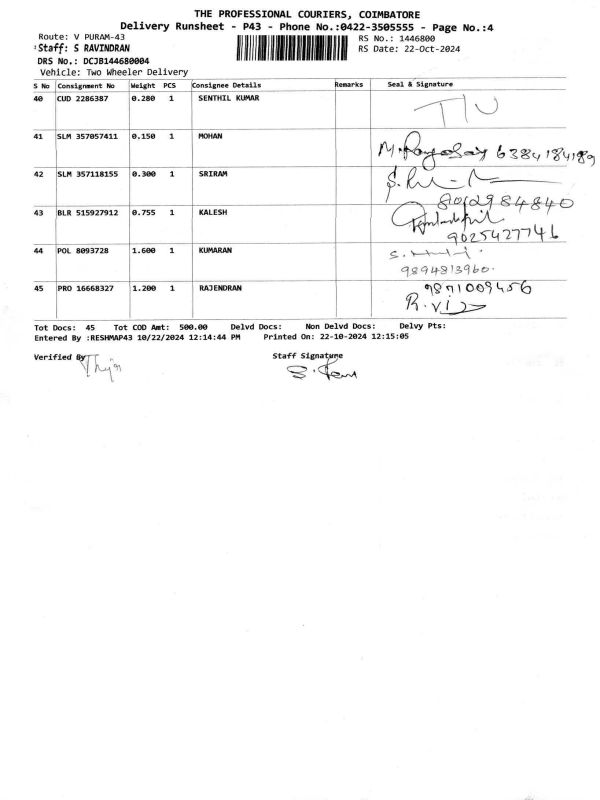 THE PROFESSIONAL COURIERS, COIMBATORE
Delivery Runsheet - P43 - Phone No.:0422-3505555 - Page No.:4
Route: V PURAM-43
RS No.: 1446800
Staff: S RAVINDRAN
RS Date: 22-Oct-2024
DRS No.: DCJB144680004
Vehicle: Two Wheeler Delivery
S No Consignment No Weight PCS Consignee Details Remarks Seal & Signature
40 CUD 2286387 0.280 1 SENTHIL KUMAR
41 SLM 357057411 0.150 1 MOHAN
6384184189
42 SLM 357118155 0.300 1 SRIRAM
8012984840
43 BLR 515927912 0.755 1 KALESH
9025427746
44 POL 8093728 1.600 1 KUMARAN
9894813960.
45 PRO 16668327 1.200 1 RAJENDRAN
9871009456
Tot Docs: 45 Tot COD Amt: 500.00 Delvd Docs: Non Delvd Docs: Delvy Pts:
Entered By :RESHMAP43 10/22/2024 12:14:44 PM Printed On: 22-10-2024 12:15:05
Verified By
Staff Signature